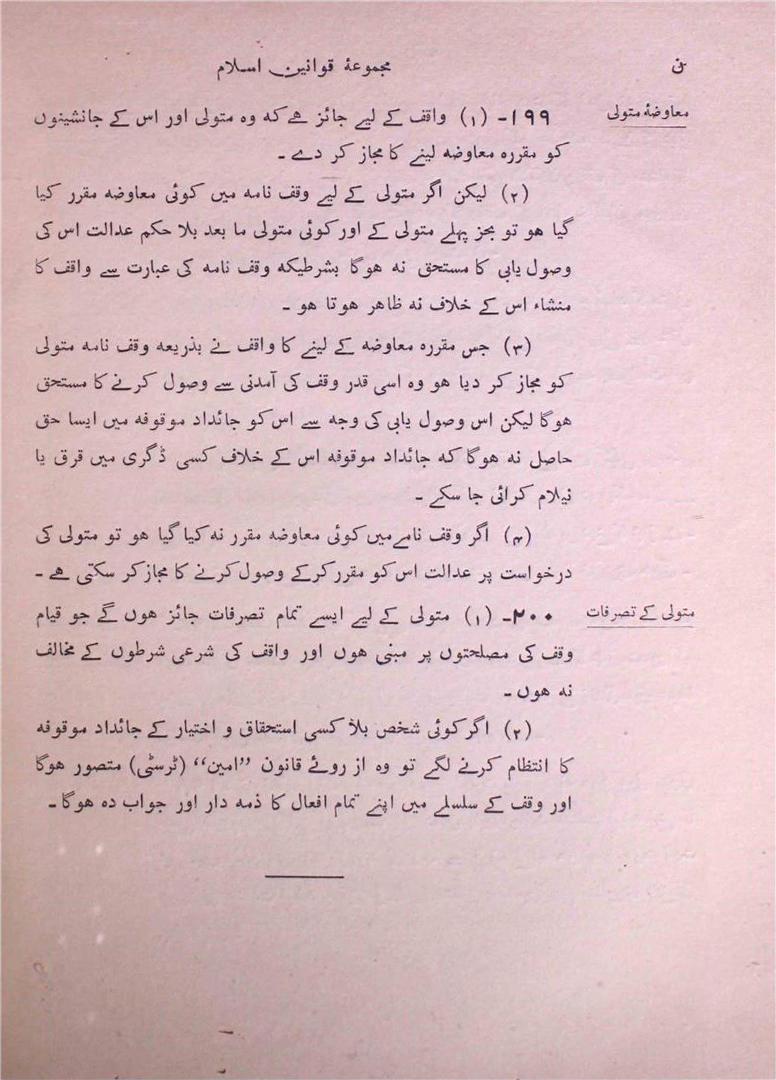 ن
مجموعۂ قوانین اسلام
معاوضۂ متولی
۱۹۹- (۱) واقف کے لیے جائز ہے کہ وہ متولی اور اس کے جانشینوں
کو مقررہ معاوضہ لینے کا مجاز کر دے ۔
(۲) لیکن اگر متولی کے لیے وقف نامہ میں کوئی معاوضہ مقرر کیا
گیا ہو تو بجز پہلے متولی کے اور کوئی متولی ما بعد بلا حکم عدالت اس کی
وصول یابی کا مستحق نہ ہوگا بشرطیکہ وقف نامہ کی عبارت سے واقف کا
منشاء اس کے خلاف نہ ظاہر ہوتا ہو ۔
(۳) جس مقررہ معاوضہ کے لینے کا واقف نے بذریعہ وقف نامہ متولی
کو مجاز کر دیا ہو وہ اسی قدر وقف کی آمدنی سے وصول کرنے کا مستحق
ہوگا لیکن اس وصول یابی کی وجہ سے اس کو جائداد موقوفہ میں ایسا حق
حاصل نہ ہوگا کہ جائداد موقوفہ اس کے خلاف کسی ڈگری میں قرق یا
نیلام کرائی جا سکے ۔
(۴) اگر وقف نامے میں کوئی معاوضہ مقرر نہ کیا گیا ہو تو متولی کی
درخواست پر عدالت اس کو مقرر کرکے وصول کرنے کا مجاز کر سکتی ہے ۔
متولی کے تصرفات
۲۰۰- (۱) متولی کے لیے ایسے تمام تصرفات جائز ہوں گے جو قیام
وقف کی مصلحتوں پر مبنی ہوں اور واقف کی شرعی شرطوں کے مخالف
نہ ہوں ۔
(۲) اگر کوئی شخص بلا کسی استحقاق و اختیار کے جائداد موقوفہ
کا انتظام کرنے لگے تو وہ از روئے قانون ”امین“ (ٹرسٹی) متصور ہوگا
اور وقف کے سلسلے میں اپنے تمام افعال کا ذمہ دار اور جواب دہ ہوگا ۔